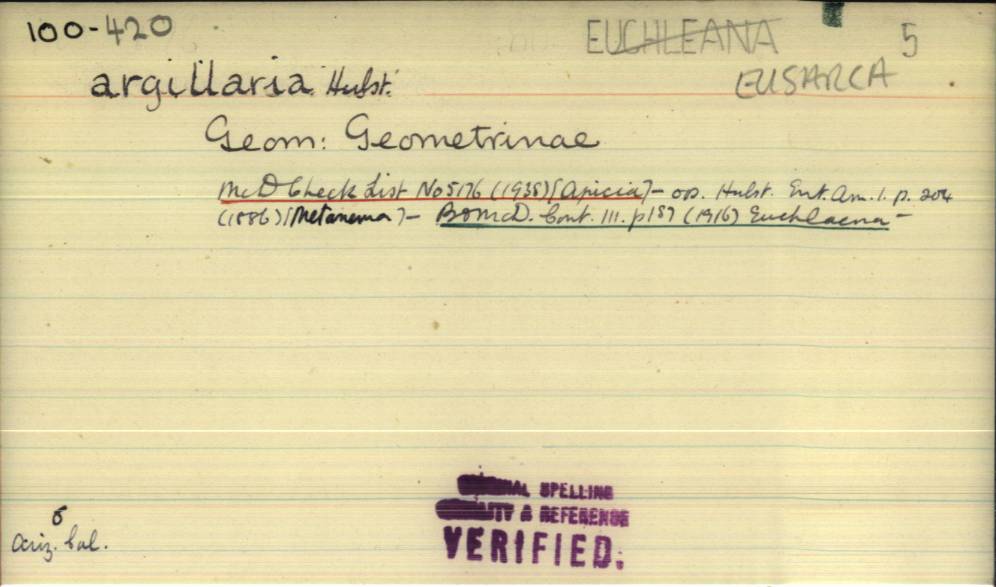 100-420
EUCHLEANA 5
argillaria Hulst.
EUSARCA
Geom: Geometrinae
McD Check List No 5176 (1938) [Apicia] - op. Hulst. Ent. Am. 1. p. 204
(1886) [Metanema] - B & McD. Cont. III. p 187 (1916) Euchlaena -
SPELLING
& REFERENCE
VERIFIED.
Ariz. Cal.